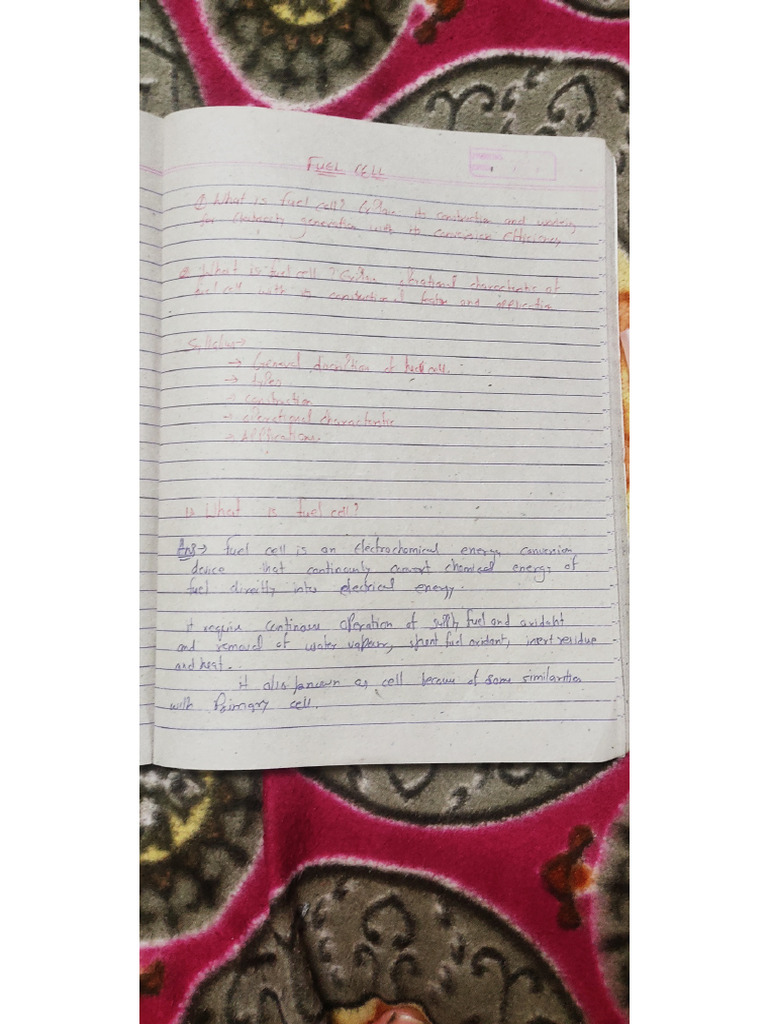 FUEL CELL
Q What is fuel cell? Explain its construction and working
for electricity generation with its conversion efficiency
Q What is fuel cell? Explain operational characteristic of
fuel cell with its constructional feature and application
Syllabus→
→ General description of fuel cell.
→ types
→ construction
→ operational characteristic
→ Applications.
1) What is fuel cell?
Ans→ Fuel cell is an electrochemical energy conversion
device that continously convert chemical energy of
fuel directly into electrical energy.
it require continous operation of supply fuel and oxidant
and removal of water vapour, spent fuel oxidant, inert residue
and heat.
it also known as cell because of some similarities
with Primary cell.